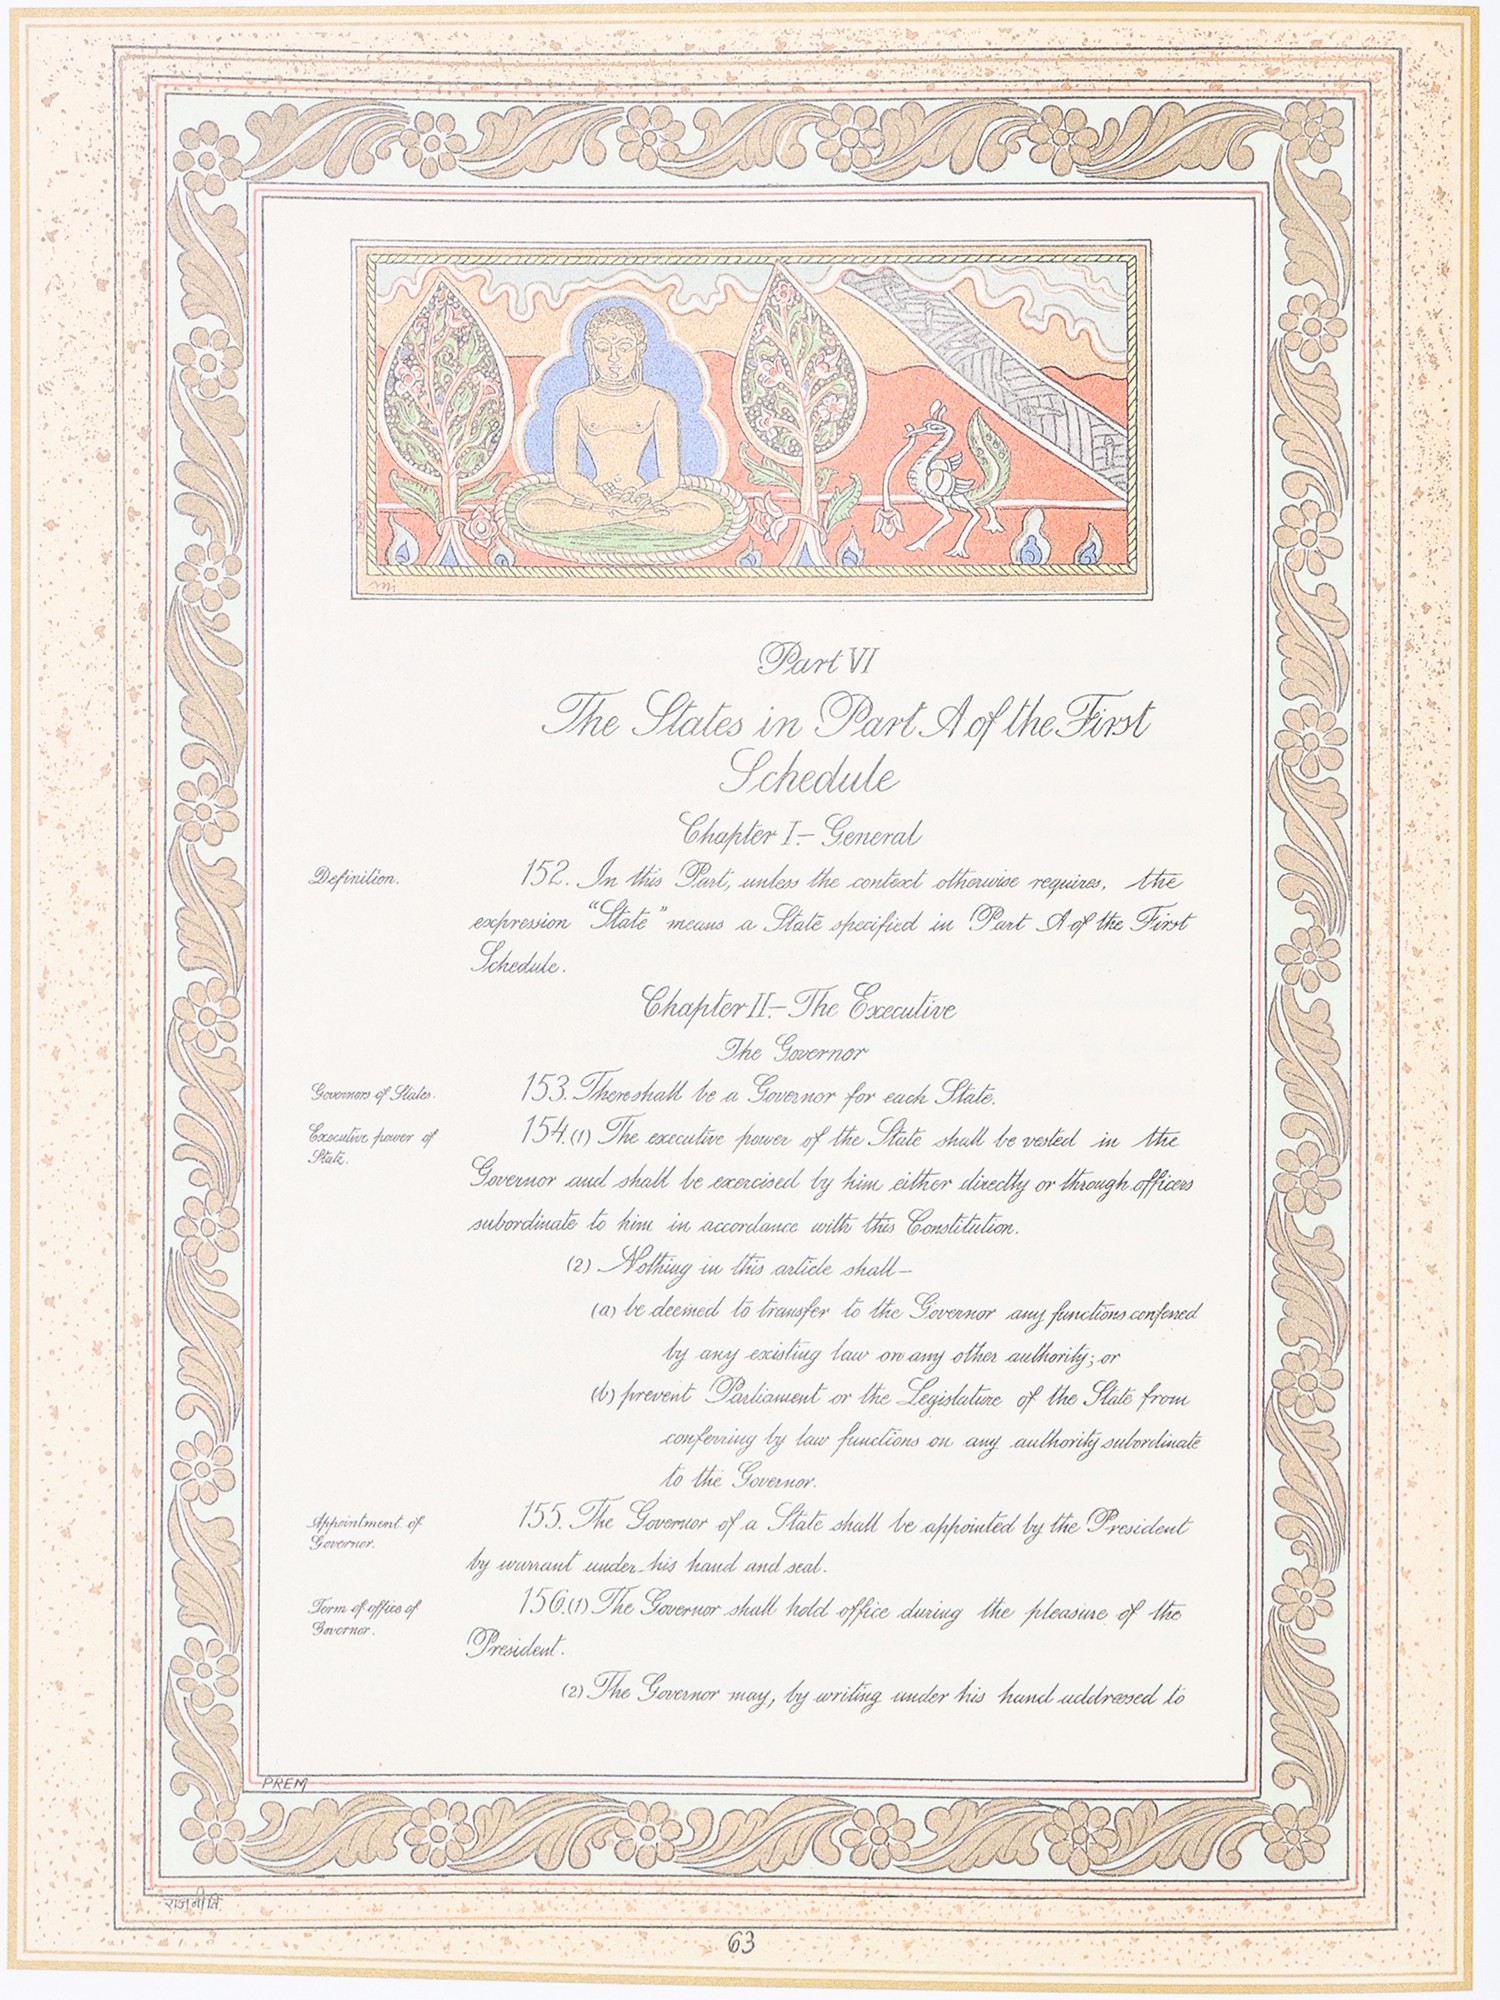 Part VI
The States in Part A of the First
Schedule
Chapter I.— General
Definition.
152. In this Part, unless the context otherwise requires, the
expression "State" means a State specified in Part A of the First
Schedule.
Chapter II.— The Executive
The Governor
Governors of States.
153. There shall be a Governor for each State.
Executive power of
State.
154.(1) The executive power of the State shall be vested in the
Governor and shall be exercised by him either directly or through officers
subordinate to him in accordance with this Constitution.
(2) Nothing in this article shall—
(a) be deemed to transfer to the Governor any functions conferred
by any existing law on any other authority; or
(b) prevent Parliament or the Legislature of the State from
conferring by law functions on any authority subordinate
to the Governor.
Appointment of
Governor.
155. The Governor of a State shall be appointed by the President
by warrant under his hand and seal.
Term of office of
Governor.
156.(1) The Governor shall hold office during the pleasure of the
President.
(2) The Governor may, by writing under his hand addressed to
PREM
राजनीति
63